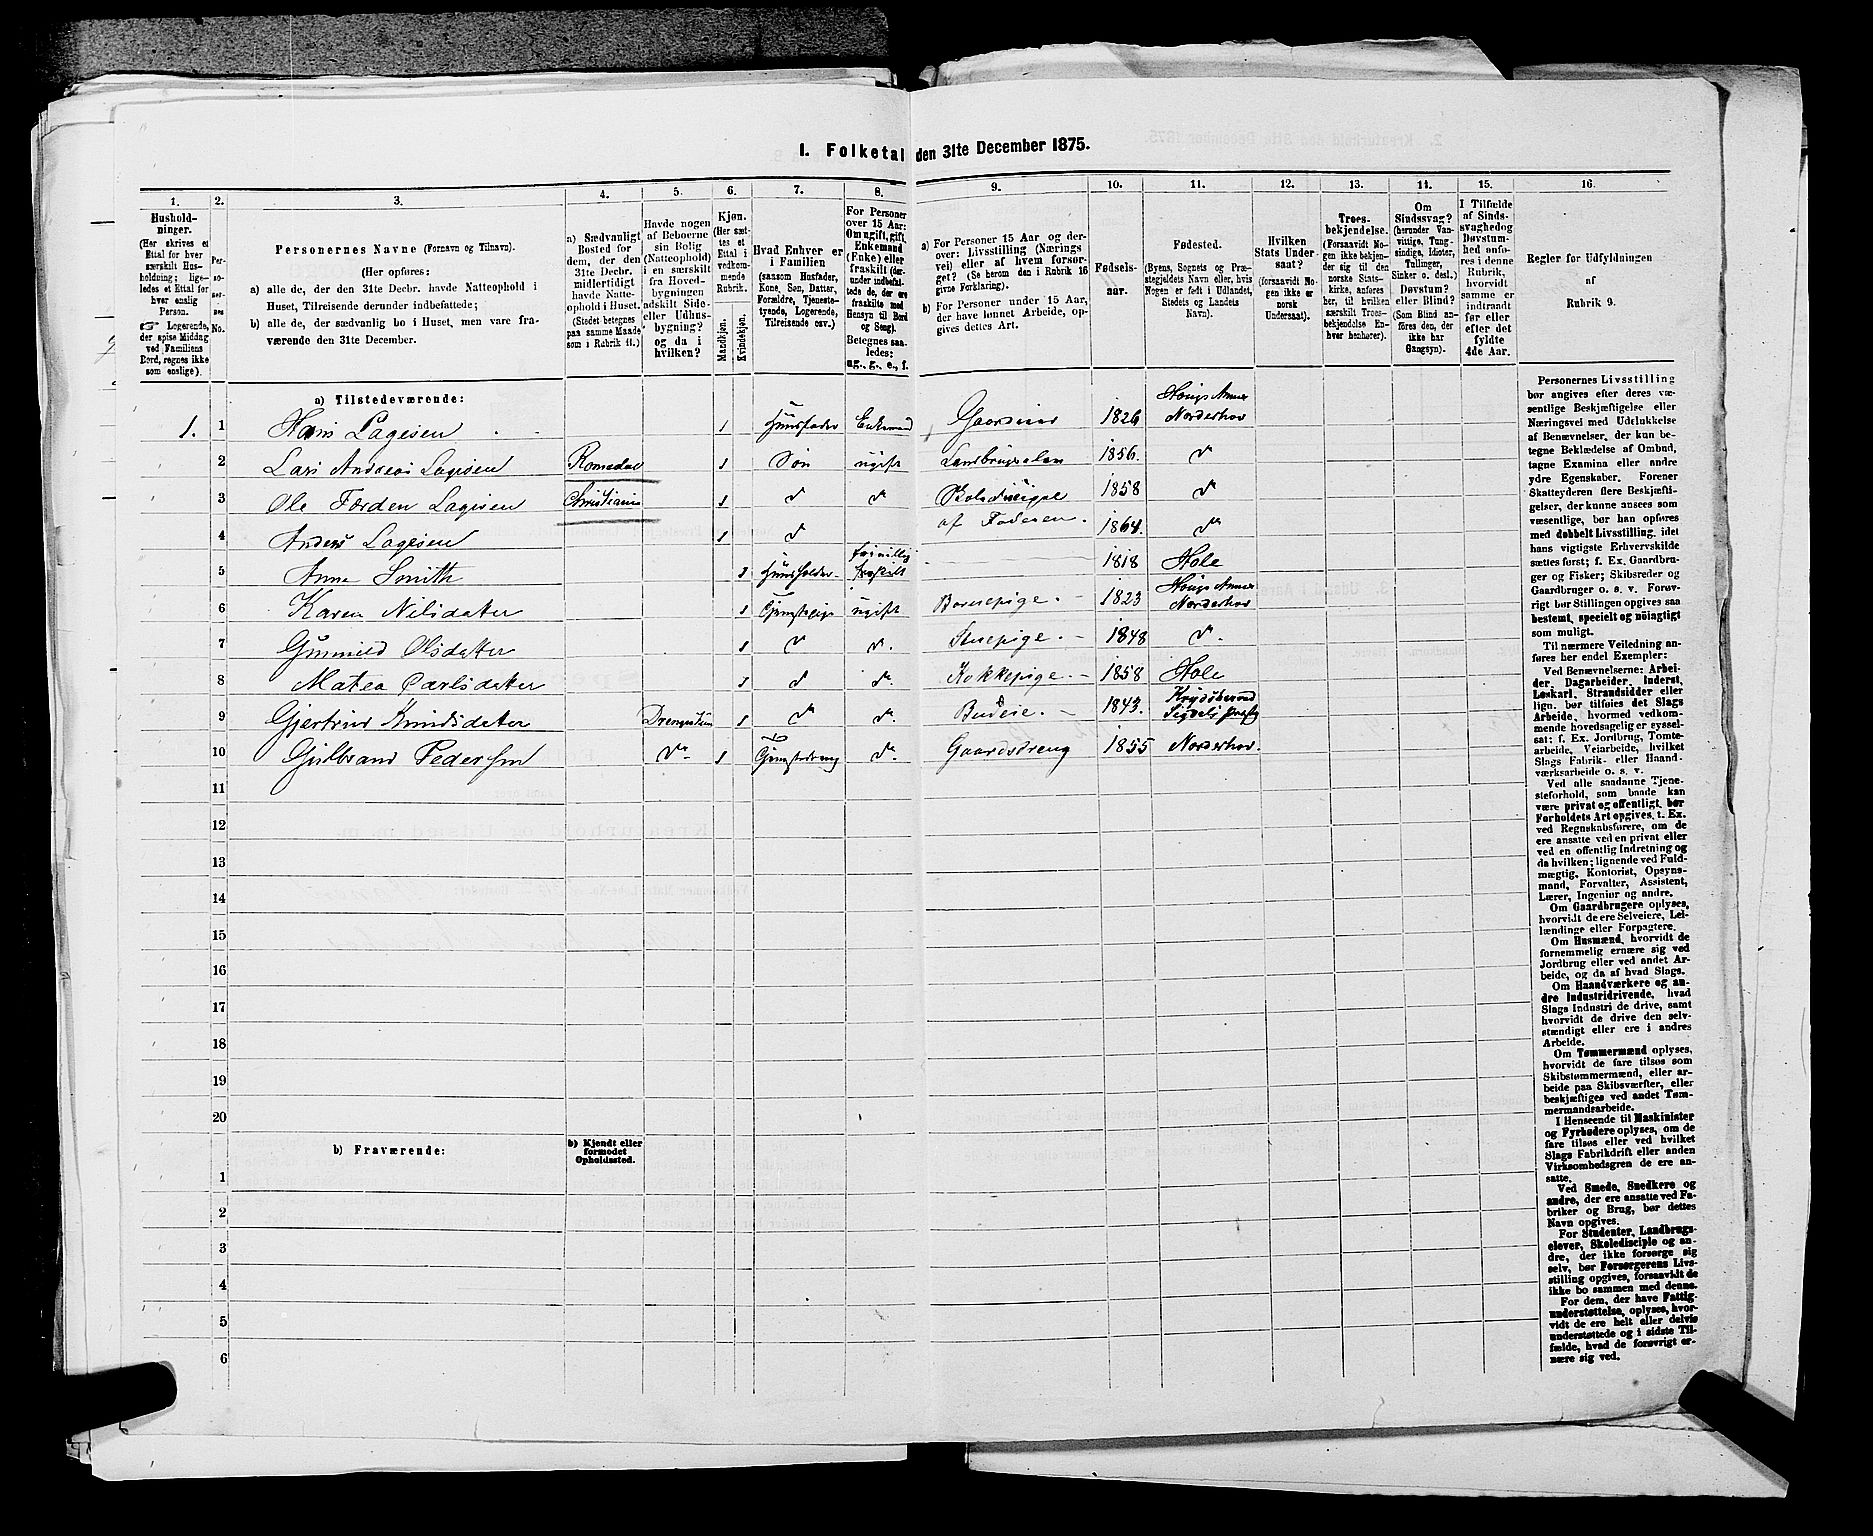 1. Folketal den 31te December 1875.
1.
2.
3.
4.
5.
6.
7.
8.
9.
10.
11.
12.
13.
14.
15.
16.
Hushold-
ninger.
(Her skrives et
Ettal for hver
særskilt Hus-
holdning; lige-
ledes et Ettal for
hver enslig
Person.
☞ Logerende,
der spise Middag
ved Familiens
Bord, regnes ikke
som enslige).
Per-
so-
ner-
nes
No.
Personernes Navne (Fornavn og Tilnavn).
(Her opføres:
a) alle de, der den 31te Decbr. havde Natteophold i
Huset, Tilreisende derunder indbefattede;
b) alle de, der sædvanlig bo i Huset, men vare fra-
værende den 31te December.
a) Sædvanligt
Bosted for
dem, der den
31te Decbr.
midlertidigt
havde Natte-
ophold i Huset.
(Stedet betegnes
paa samme Maade
som i Rubrik 11.)
Havde nogen
af Beboerne
sin Bolig
(Natteophold)
i en særskilt
fra Hoved-
bygningen
adskilt Side-
eller Udhus-
bygning?
og da i
hvilken?
Kjøn.
(Her sæt-
tes et
Ettal i
vedkom-
mende
Rubrik.
Mandkjøn.
Kvindekjøn.
Hvad Enhver er
i Familien
(saasom Husfader,
Kone, Søn, Datter,
Forældre, Tjeneste-
tyende, Logerende,
Tilreisende osv.)
For Personer
over 15 Aar:
Om ugift, gift,
Enkemand
(Enke) eller
fraskilt (der-
under indbefat-
tede de, der ere
fraskilte med
Hensyn til Bord
og Seng).
Betegnes saa-
ledes:
ug., g., e., f.
a) For Personer 15 Aar og der-
over: Livsstilling (Nærings
vei) eller af hvem forsør-
get? (Se herom den i Rubrik 16
givne Forklaring).
b) For Personer under 15 Aar,
der have lønnet Arbeide, op-
gives dettes Art.
Fødsels-
aar.
Fødested.
(Byens, Sognets og Præ-
stegjeldets Navn eller, hvis
Nogen er født i Udlandet,
Stedets og Landets
Navn).
Hvilken
Stats Under-
saat?
(forsaavidt No-
gen ikke er
norsk
Undersaat).
Troes-
bekjendelse.
(Forsaavidt No-
gen ikke bekjen-
der sig til den
norske Stats-
kirke, anføres
her, til hvilken
særskilt Troes-
bekjendelse En-
hver henhører).
Om
Sindssvag?
(herunder Van-
vittige, Tung-
sindige, Idioter,
Tullinger,
Sinker o. desl.)
Døvstum?
eller Blind?
(Som Blind an-
føres den, der
ikke har
Gangsyn).
I Tilfælde
af Sinds-
svaghed og
Døvstum-
hed anfø-
res i denne
Rubrik,
hvorvidt
samme er
indtraadt
før eller
efter det
fyldte
4de Aar.
Regler for Udfyldningen
af
Rubrik 9.
a) Tilstedeværende:
1. 1 Hans Lagesen 1 Huusfader Enkemand Gaardeier 1826 Hougs Annex Norderhov
2 Lars Andreas Lagesen Romedal 1 Søn ugift Landbrugselev 1856 d°
3 Ole Førden Lagesen Christiania 1 d° d° 1858 d°
af Faderen.
4 Anders Lagesen 1 d° 1864 d°
5 Anna Smith 1 frivillig fraskilt 1818 Hole
6 Karen Nilsdater 1 ugift 1823 Hougs Annex Norderhov
7 Gunnild Olsdatter 1 d° d° Stuepige 1848 d°
8 Matea Carlsdater 1 d d° Kokkepige 1858 Hole
9 Gjertrud Knudsdater 1 d° d° Budeie 1843.
10 Gulbrand Pedersen d° 1 d° Gaardsdreng 1855 Norderhov.
11
12
13
14
15
16
17
18
19
20
b) Fraværende:
b) Kjendt eller
formodet
Opholdssted.
1
2
3
4
5
6
Personernes Livsstilling
bør angives efter deres væ-
sentlige Beskjæftigelse eller
Næringsvei med Udelukkelse
af Benævnelser, der kun be-
tegne Beklædelse af Ombud,
tagne Examina eller andre
ydre Egenskaber. Forener
Skatteyderen flere Beskjæfti-
gelser, der kunne ansees som
væsentlige, bør han opføres
med dobbelt Livsstilling, idet
hans vigtigste Erhvervskilde
sættes først; f. Ex. Gaardbru-
ger og Fisker; Skibsreder og
Gaardbruger o. s. v. Forøv-
rigt bør Stillingen opgives saa
bestemt, specielt og nöiagtigt
som muligt.
Til nærmere Veiledning an-
føres her endel Exempler:
Ved Benævnelserne: Arbei-
der, Dagarbeider, Inderst,
Løskarl, Strandsidder eller
lign. bør tilføies det Slags
Arbeide, hvormed vedkom-
mende hovedsagelig er syssel-
sat; f. Ex. Jordbrug, Tomte-
arbeide, Veiarbeide, hvilket
Slags Fabrik- eller Haand-
værksarbeide o. s. v.
Ved alle saadanne Tjene-
steforhold, som baade kan
være privat og offentligt, bør
Forholdets Art opgives, t. Ex.
ved Regnskabsførere, om de
ere ansatte ved en privat eller
ved en offentlig Indretning og
da hvilken; lignende ved Fuld-
mægtig, Kontorist, Opsyns-
mand, Forvalter, Assistent,
Lærer, Ingeniør og andre.
Om Gaardbrugere oplyses,
hvorvidt de ere Selveiere, Lei-
lændinge eller Forpagtere.
Om Husmænd, hvorvidt de
fornemmelig ernære sig ved
Jordbrug eller ved andet Ar-
beide, og da af hvad Slags.
Om Haandværkere og an-
dre Industridrivende, hvad
Slags Industri de drive, samt
hvorvidt de drive den selv-
stændigt eller ere i andres
Arbeide.
Om Tømmermænd oplyses,
hvorvidt de fare tilsøs som
Skibstømmermænd, eller ar-
beide paa Skibsværfter, eller
beskjæftiges ved andet Tøm-
mermandsarbeide.
I Henseende til Maskinister
og Fyrbødere oplyses, om de
fare tilsøs eller ved hvilket
Slags Fabrikdrift eller anden
Virksomhedsgren de ere an-
satte.
Ved Smede, Snedkere og
andre, der ere ansatte ved Fa-
briker og Brug, bør dettes
Navn opgives.
For Studenter, Landbrugs-
elever, Skoledisciple og an-
dre, der ikke forsørge sig
selv, bør Forsørgerens Livs-
stilling opgives, forsaavidt de
ikke bo sammen med denne.
For dem, der have Fattig-
understøttelse, oplyses, hvor-
vidt de ere helt eller delvis
understøttede og i sidste Til-
fælde, hvad de forøvrigt er-
nære sig ved.